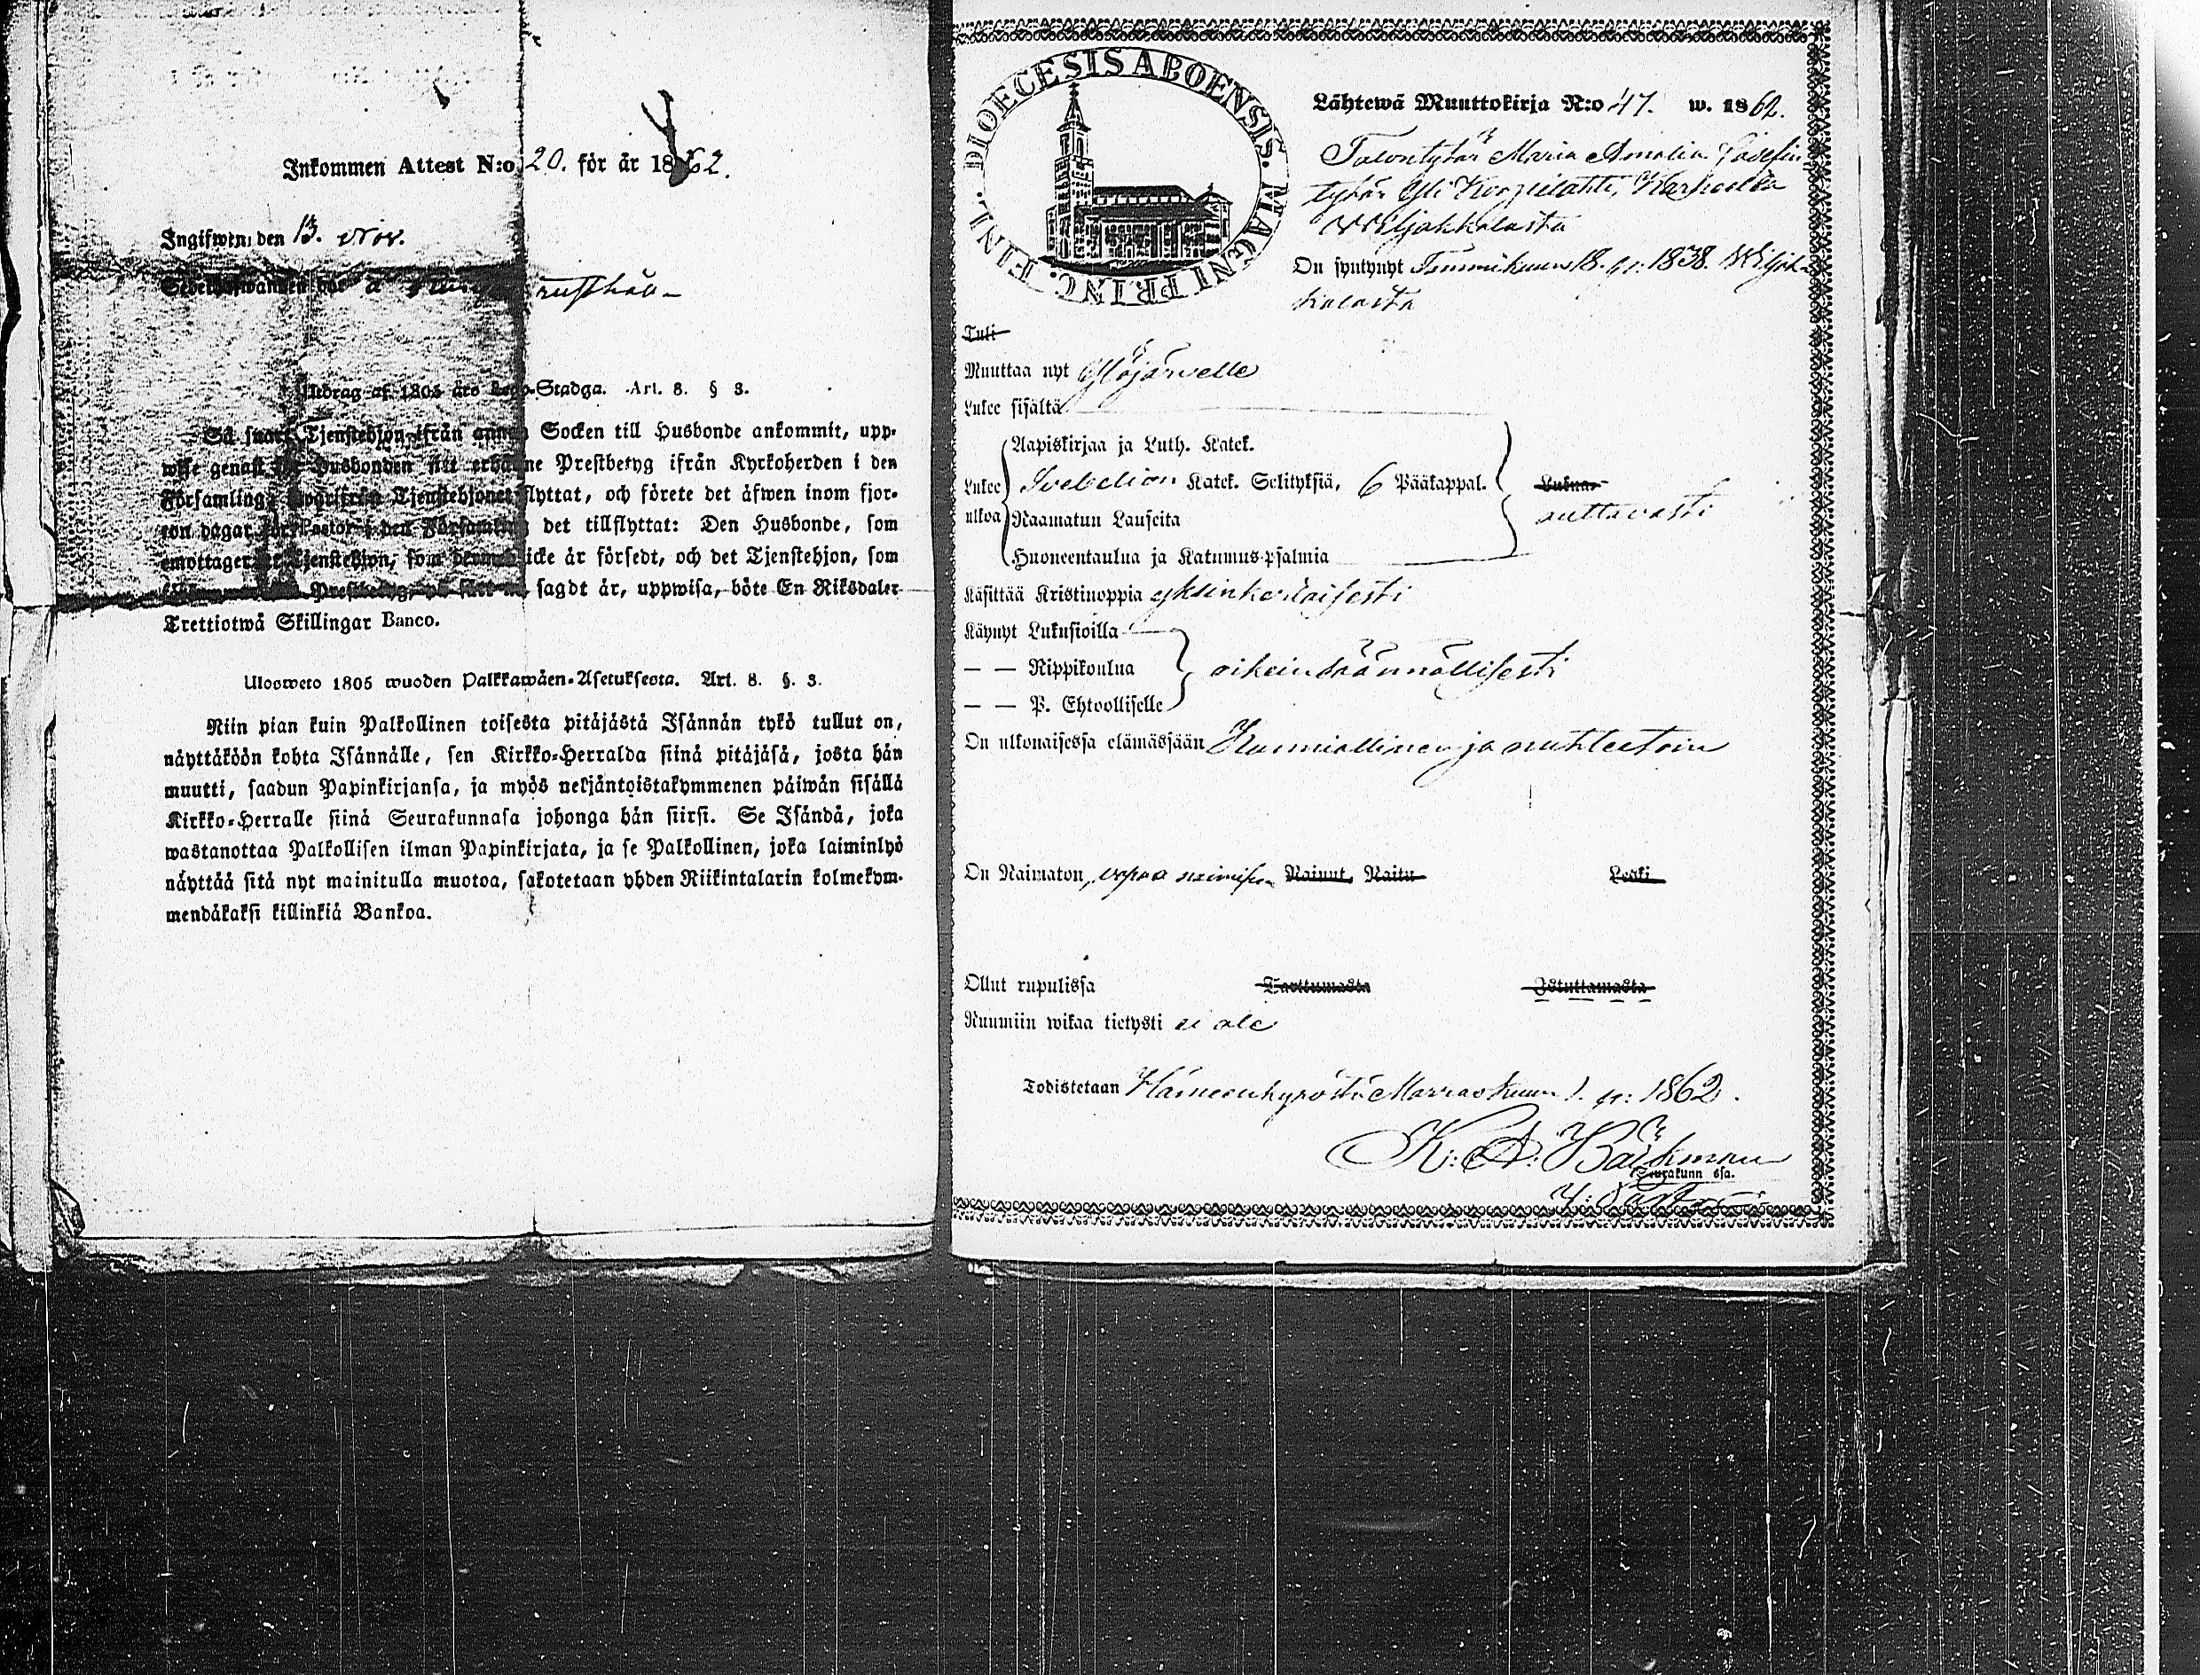 Inkommen Attest N:o 20. för år 1862.
Ingifwen den 13. Nov.
rusthåll
Utdrag af 1805 års Lego-Stadga. Art. 8. § 3.
Så snart Tjenstehjon ifrån annan Socken till Husbonde ankommit, upp-
wise genast för Husbonden sitt erhållne Prestbetyg ifrån Kyrkoherden i den
Församling, hwarifrån Tjenstehjonet flyttat, och förete det äfwen inom fjor-
ton dagar för Pastor i den Församling det tillflyttat: Den Husbonde, som
emottager ett Tjenstehjon, som dermed icke är försedt, och det Tjenstehjon, som
Prestbetyg, på sätt nu sagdt är, uppwisa, böte En Riksdaler
Trettiotwå Skillingar Banco.
Ulosweto 1805 wuoden Palkkawäen-Asetuksesta. Art. 8. §. 3.
Niin pian kuin Palkollinen toisesta pitäjästä Isännän tykö tullut on,
näyttäköön kohta Isännälle, sen Kirkko-Herralda siinä pitäjäsä, josta hän
muutti, saadun Papinkirjansa, ja myös neljäntoistakymmenen päiwän sisällä
Kirkko-Herralle siinä Seurakunnasa johonga hän siirsi. Se Isändä, joka
wastanottaa Palkollisen ilman Papinkirjata, ja se Palkollinen, joka laiminlyö
näyttää sitä nyt mainitulla muotoa, sakotetaan yhden Riikintalarin kolmekym-
mendäkaksi killinkiä Bankoa.
DIOECESIS ABOENSIS. MAGNI PRINC. FINL.
Lähtewä Muuttokirja N:o 47. w. 1862.
Talontytär Maria Amalia Josefin
tytär Yli Korpilahti, Karhoella
Wiljakkalasta
On syntynyt Tammikuun 18. p: 1838. Wiljak-
kalasta
Tuli
Muuttaa nyt Ylöjärvelle
Lukee sisältä
Aapiskirjaa ja Luth. Katek.
Lukee ulkoa Svebelion Katek. Selityksiä, 6 Pääkappal. Lukua-
Raamatun Lauseita auttavasti
Huoneentaulua ja Katumus-psalmia
Käsittää Kristinoppia yksinkertaisesti
Käynyt Lukusioilla
— — Rippikoulua oikein säännöllisesti
— — P. Ehtoolliselle
On ulkonaisessa elämässään Kunniallinen ja nuhteetoin
On Naimaton, vapaa naimisen Nainut, Naitu Leski
Ollut rupulissa Tarttumasta Istuttamasta
Ruumiin wikaa tietysti ei ole
Todistetaan Hämeenkyröstä Marraskuun 1. p: 1862.
K: A: Bäckman
Seurakunn ssa.